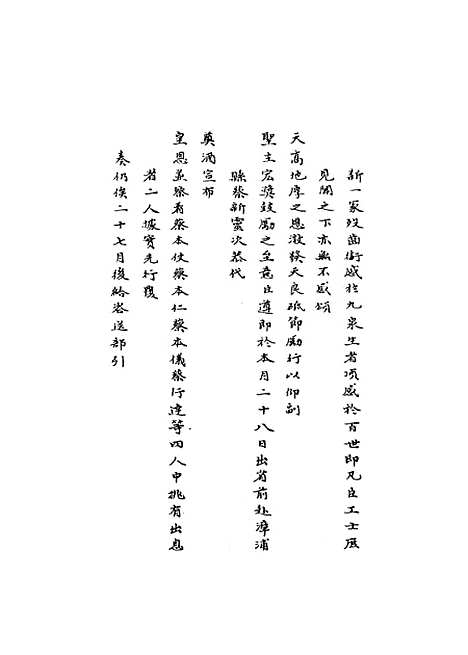 新一家歿齒銜感於九泉生者頂感於百世即凡臣工士庶
見聞之下亦無不感頌
天高地厚之恩激發天良砥節勵行以仰副
聖主宏獎鼓勵之至意臣遵即於本月二十八日出省前赴漳浦
縣蔡新靈次恭代
奠酒宣布
皇恩並察看蔡本俊蔡本仁蔡本儀蔡行達等四人中挑有出息
者二人據實先行覆
奏仍俟二十七月後給咨送部引